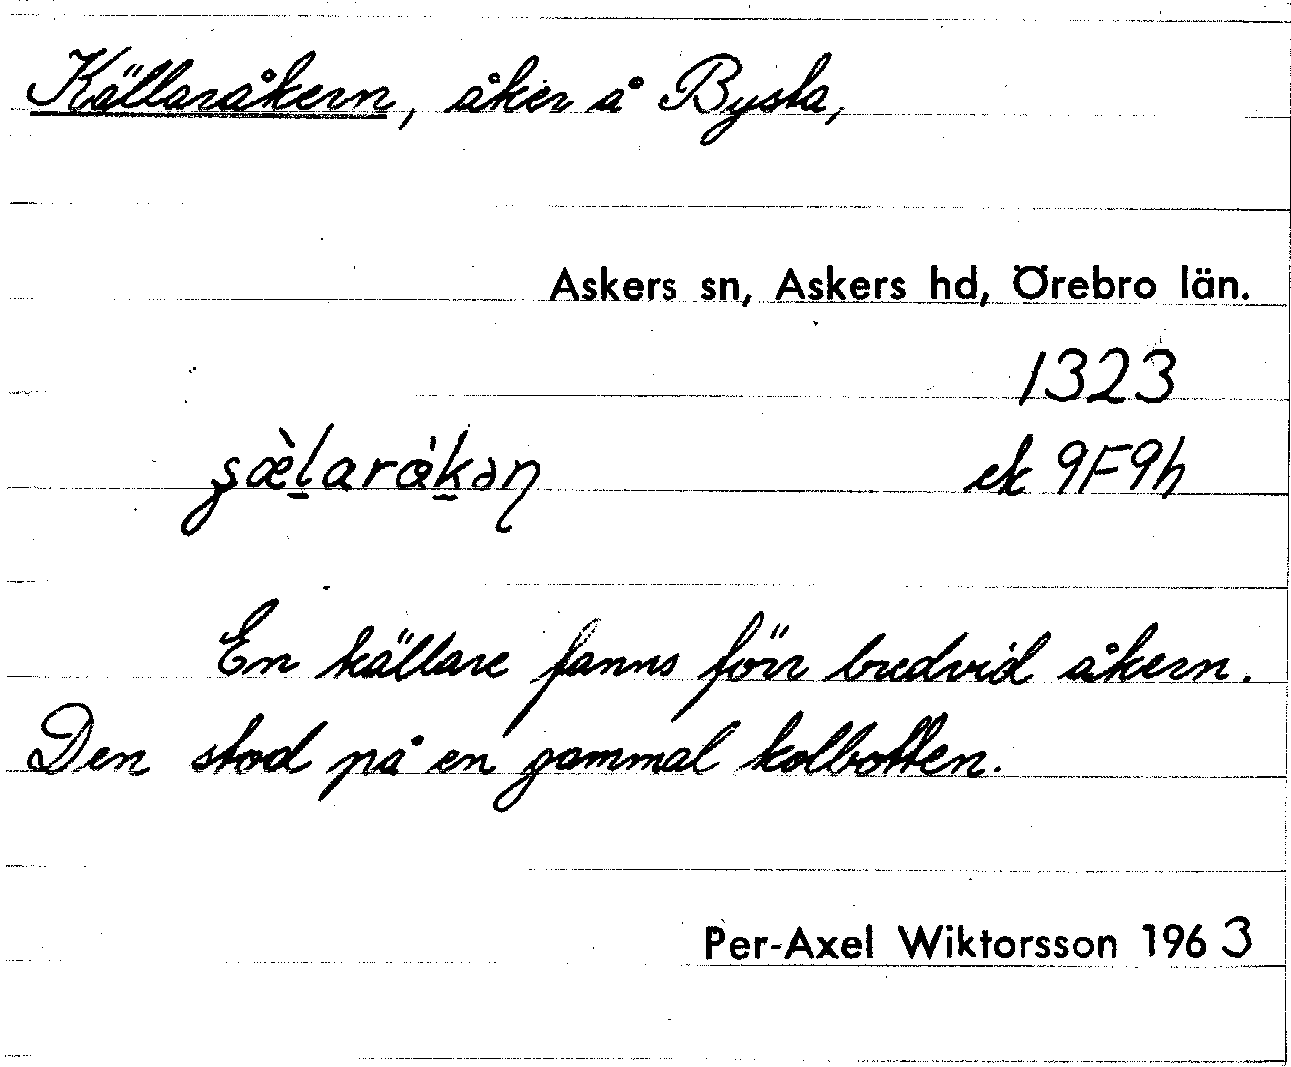 Källaråkern, åker å Bysta,
Askers sn, Askers hd, Örebro län.
1323
ek 9F9h
En källare fanns förr bredvid åkern.
Den stod på en gammal kolbotten.
Per-Axel Wiktorsson 1963